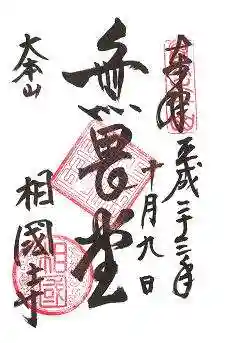 奉拝 平成二十三年
十月九日
無畏堂
大本山
相國寺